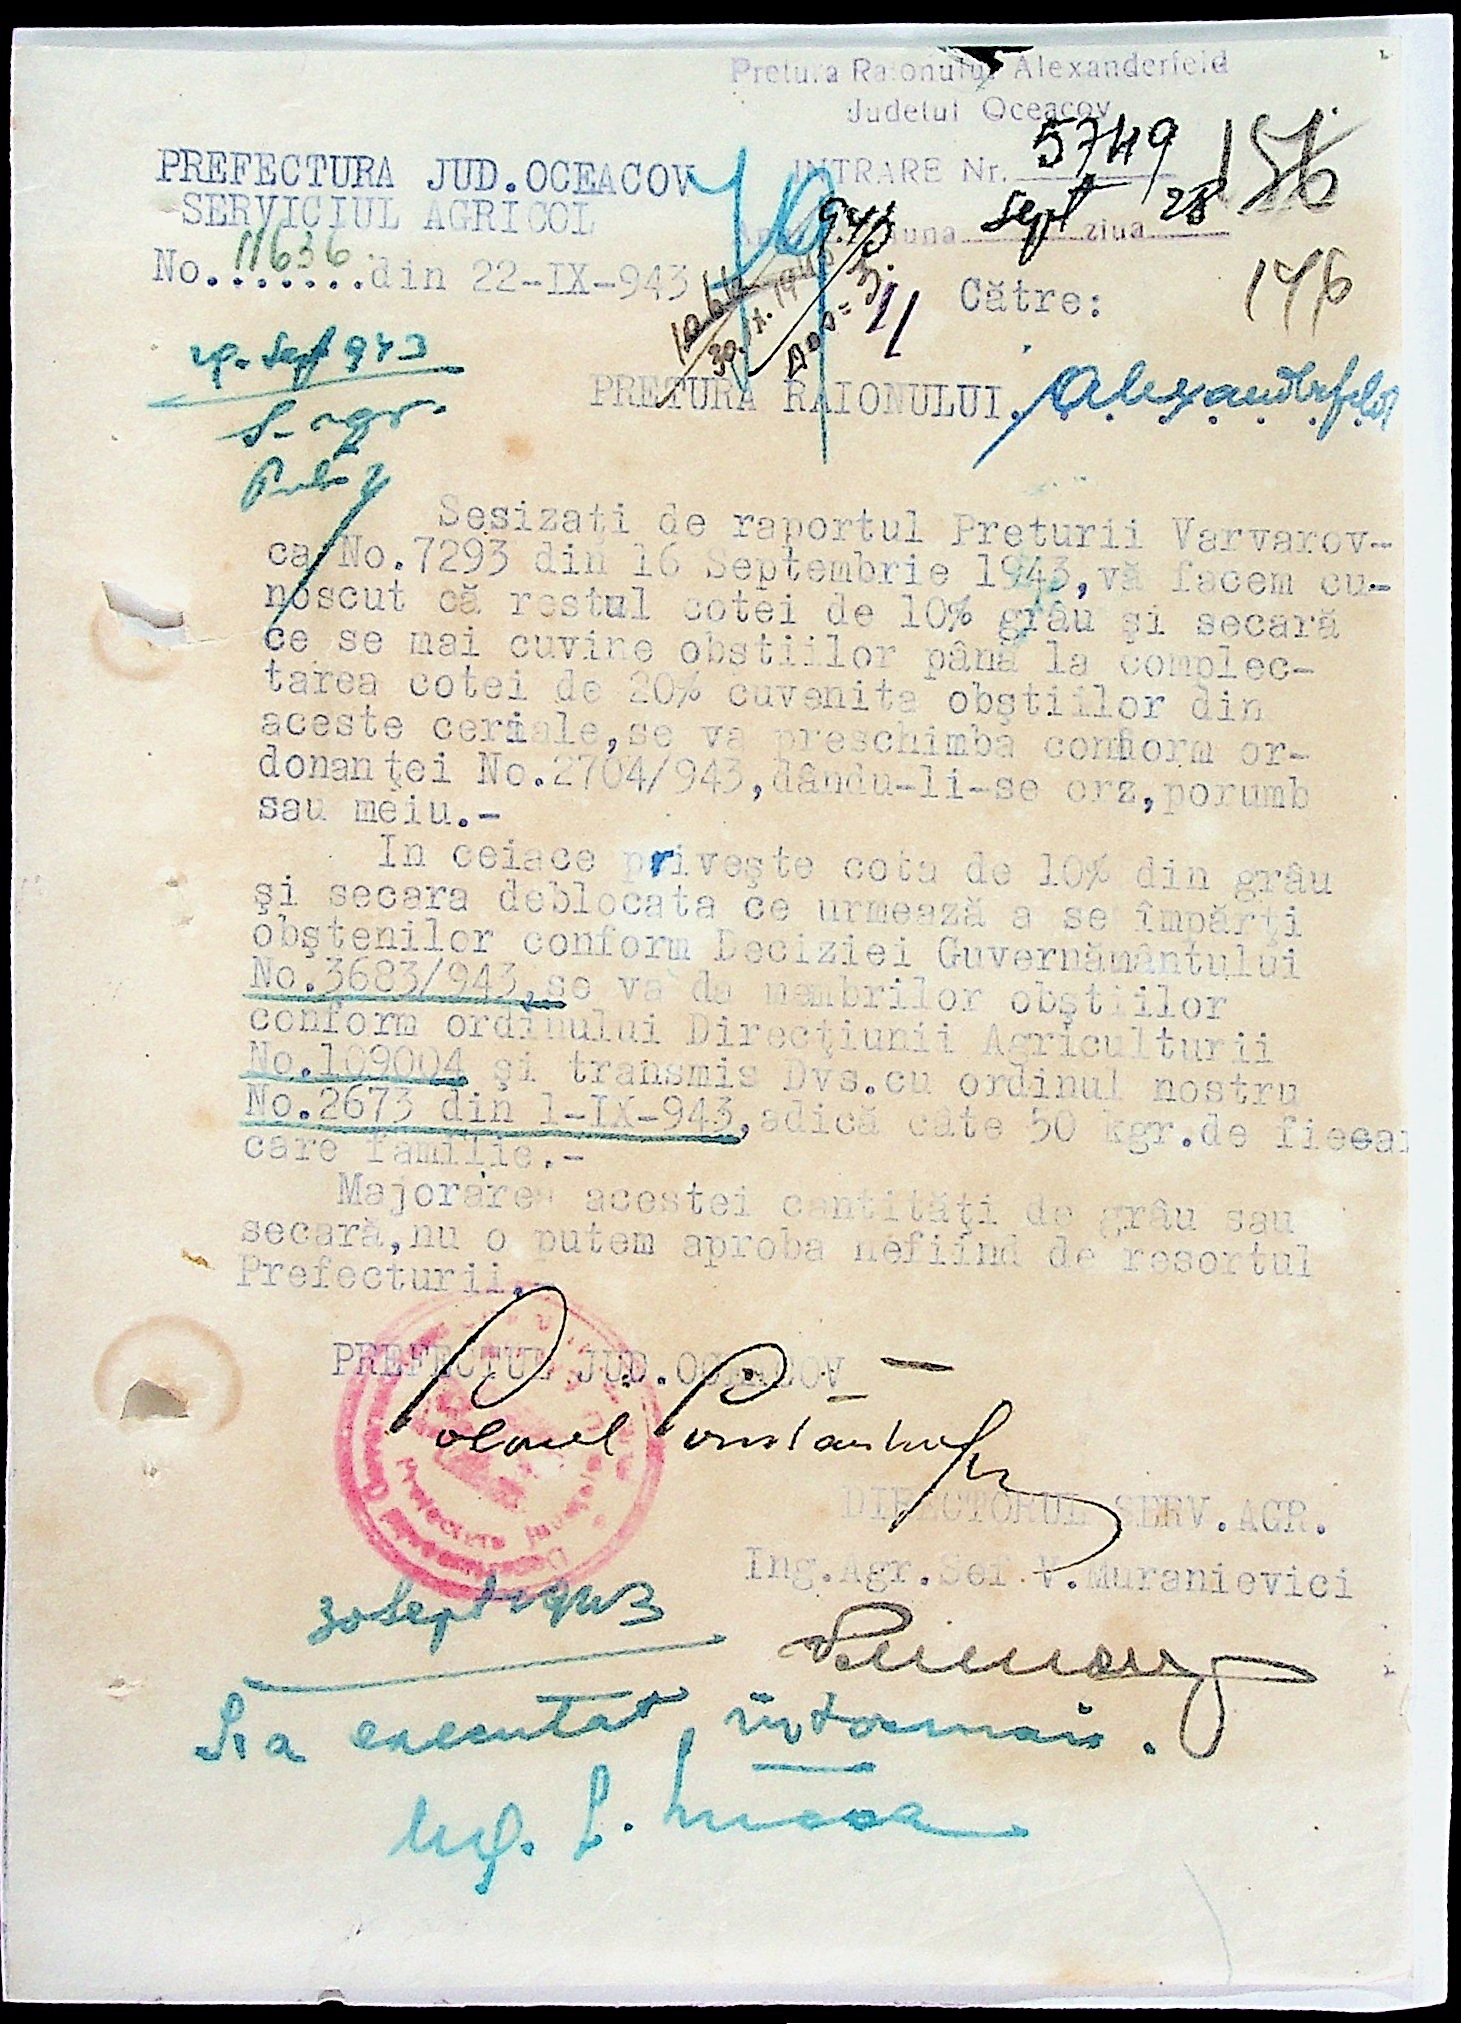 Pretura Raionului Alexanderfeld
Judetul Oceacov
INTRARE Nr. 5749
luna Sept ziua 28
156
146
PREFECTURA JUD.OCEACOV
SERVICIUL AGRICOL
No. 11636 din 22-IX-943
Către:
PRETURA RAIONULUI. Alexanderfeld
Sept 943
Sesizaţi de raportul Preturii Varvarov-
ca No.7293 din 16 Septembrie 1943,vă facem cu-
noscut că restul cotei de 10% grâu şi secară
ce se mai cuvine obştiilor până la complec-
tarea cotei de 20% cuvenita obştiilor din
aceste ceriale,se va preschimba conform or-
donanţei No.2704/943,dându-li-se orz,porumb
sau meiu.-
In ceiace priveşte cota de 10% din grâu
şi secara deblocata ce urmează a se împărţi
obştenilor conform Deciziei Guvernământului
No.3683/943,se va da membrilor obştiilor
conform ordinului Direcţiunii Agriculturii
No.109004 şi transmis Dvs.cu ordinul nostru
No.2673 din 1-IX-943,adică câte 50 kgr.de fiecar
care familie.-
Majorarea acestei cantităţi de grâu sau
secară,nu o putem aproba nefiind de resortul
Prefecturii.-
PREFECTUL JUD.OCEACOV
Colonel
DIRECTORUL SERV.AGR.
Ing.Agr.Sef V.Muranievici
30 Sept 1943
S'a executat întocmai.
Ing. L.